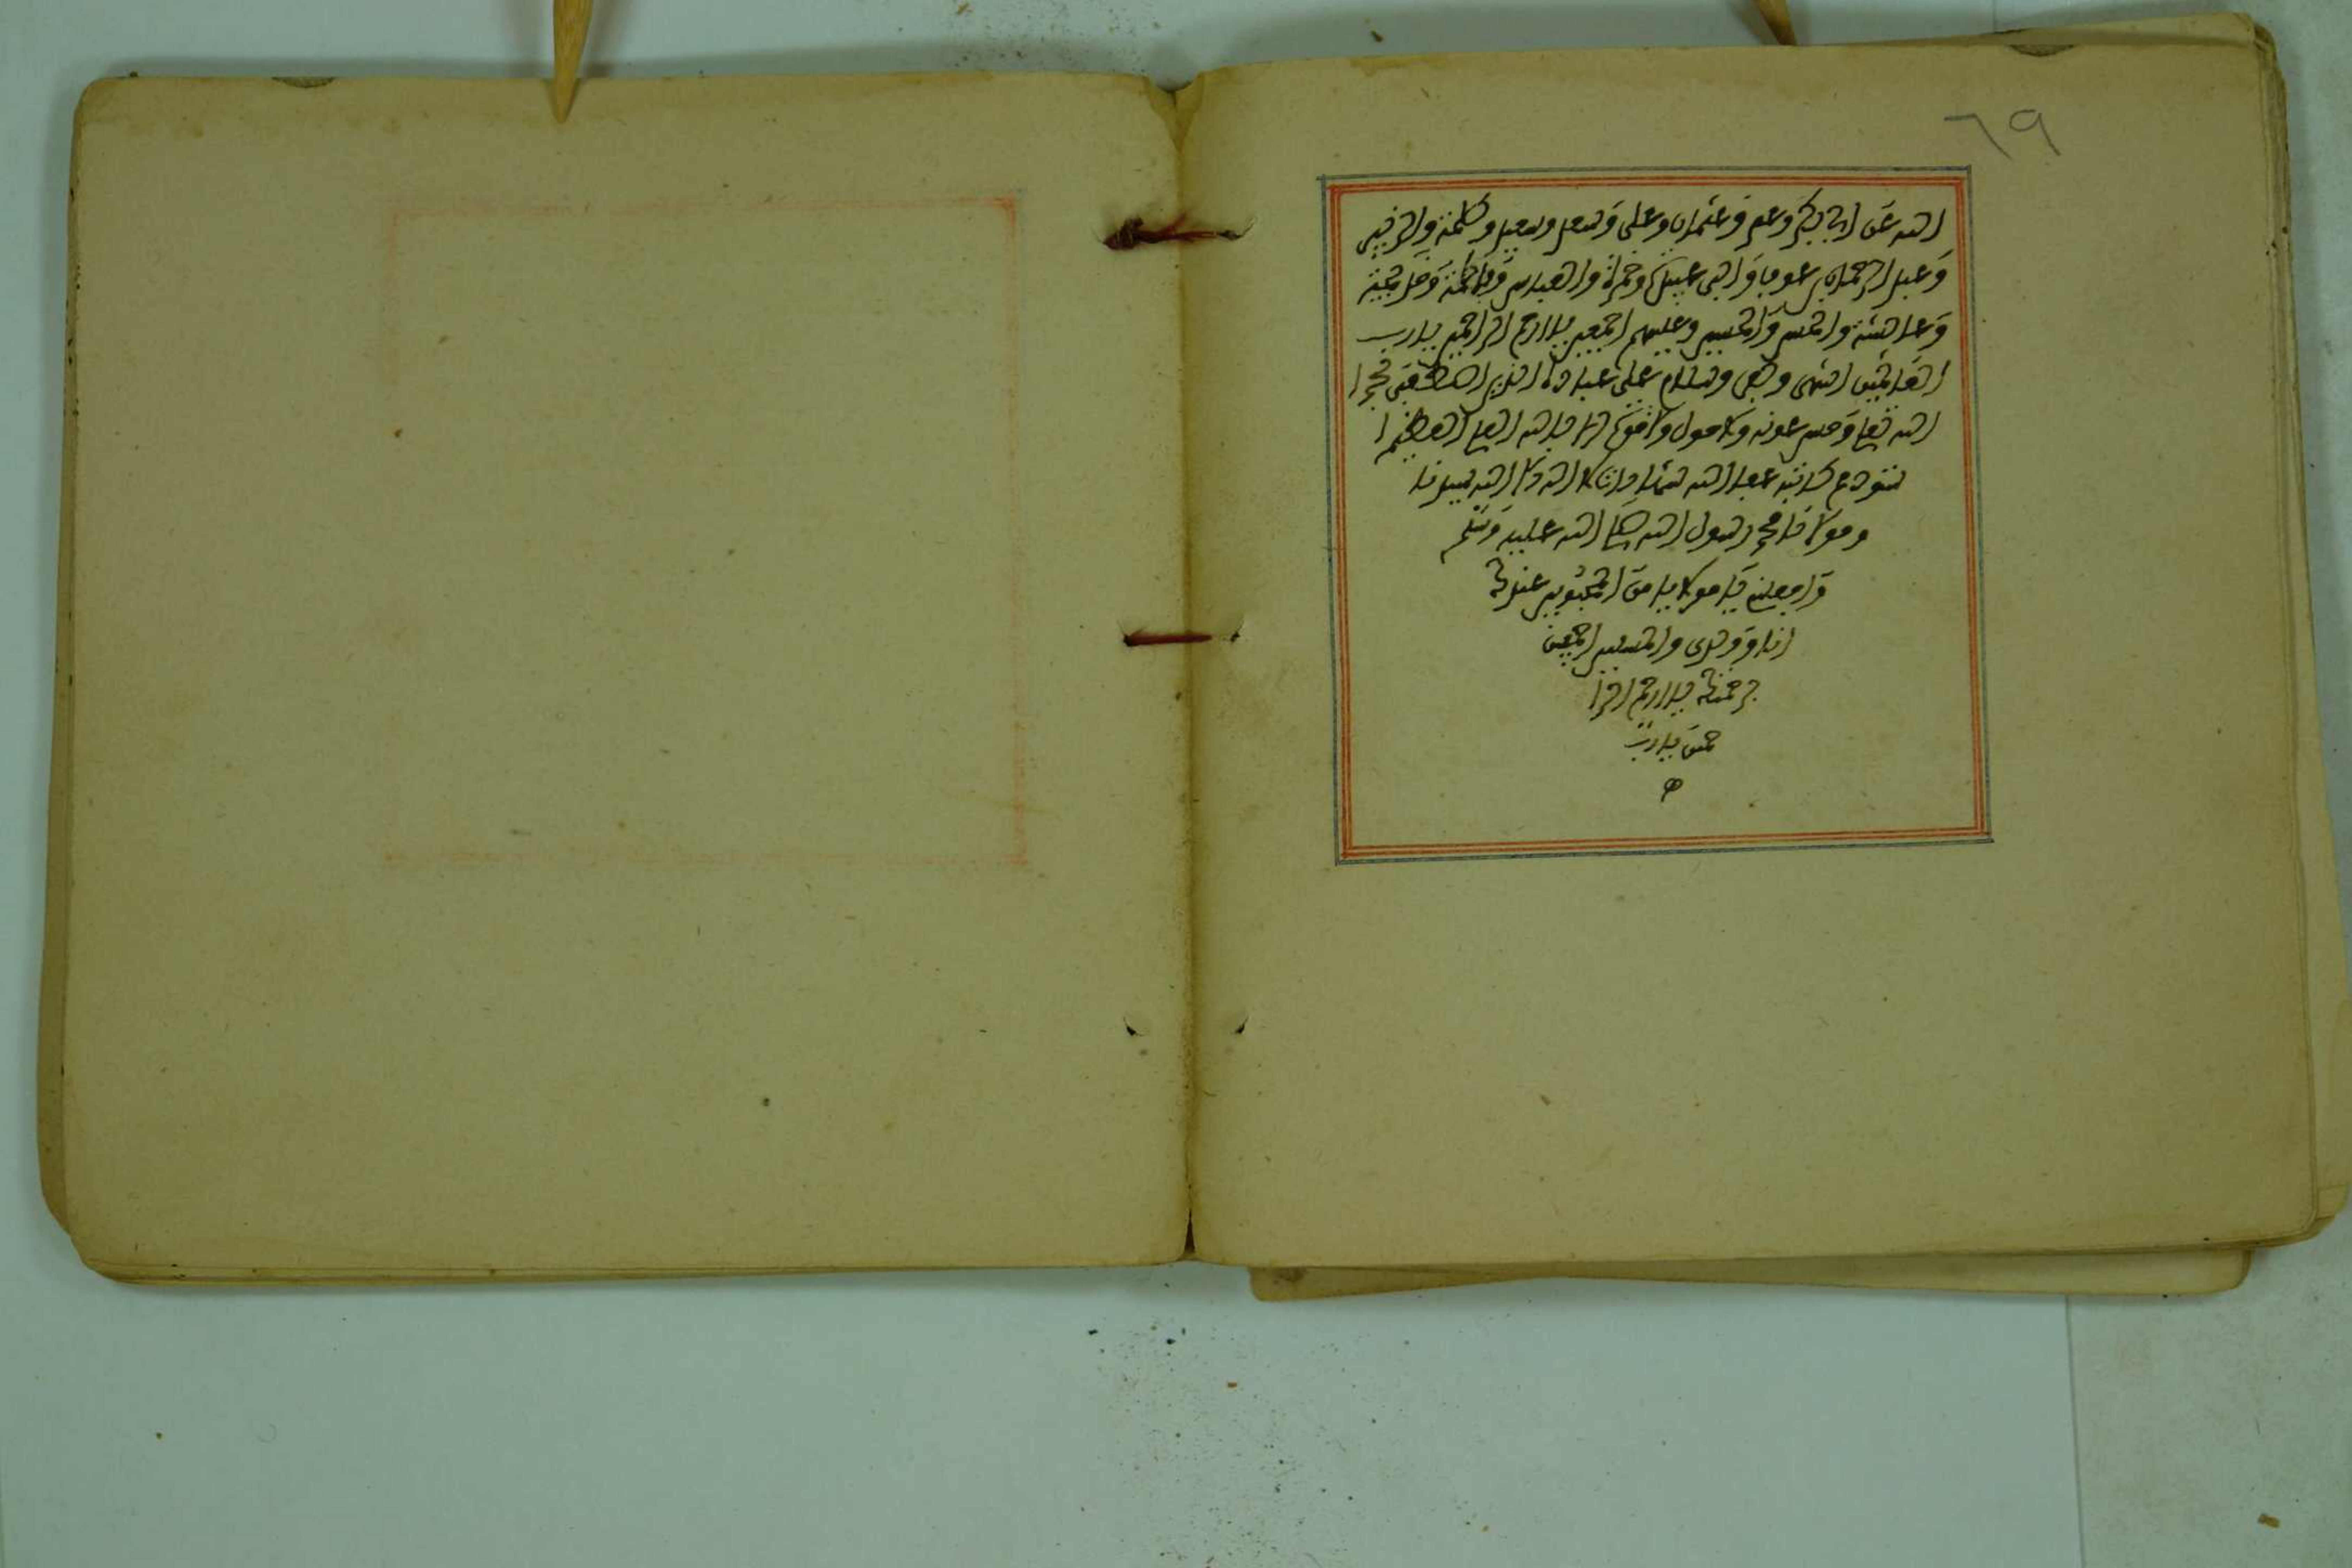 ٦٩
الله عن ابي بكر وعمر وعثمان وعلى وسعد وسعيد وطلحة والزبير
وعبد الرحمان بن عوف وابي عبيدة وحمزة والعباس وفاطمة وخديجة
وعائشة والحسن والحسين وعليهم اجمعين يا ارحم الراحمين يا رب
العالمين انتهى وكفى وسلام على عباده الذين اصطفى بحمد ا
الله تعلى وحسن عونه ولا حول ولا قوة الا بالله العلى العظيم ا
ستودع كاتبه عبد الله شهادة ان لا اله الا الله سيدنا
ومولانا محمد رسول الله صلى الله عليه وسلم
واجعلنى يا مولاى من المحبوبين عندك
انا ووالدى والمسلمين اجمعين
برحمتك يا ارحم الرا
حمين يا رب
ه